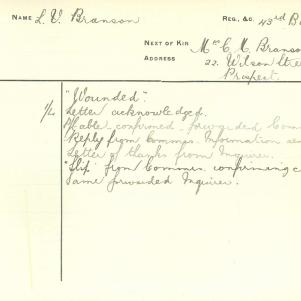 NAME L. V. Branson
REG. & C. 43rd B
NEXT OF KIN Mrs C. M. Branso
ADDRESS 22. Wilson Stre
Prospect.
"Wounded".
Letter acknowledged.
Cabled confirmed. forwarded Com
Reply from Commrs. Information se
Letter of thanks from Inquirer.
"Slip" from Commrs. confirming c
Same forwarded Inquirer.